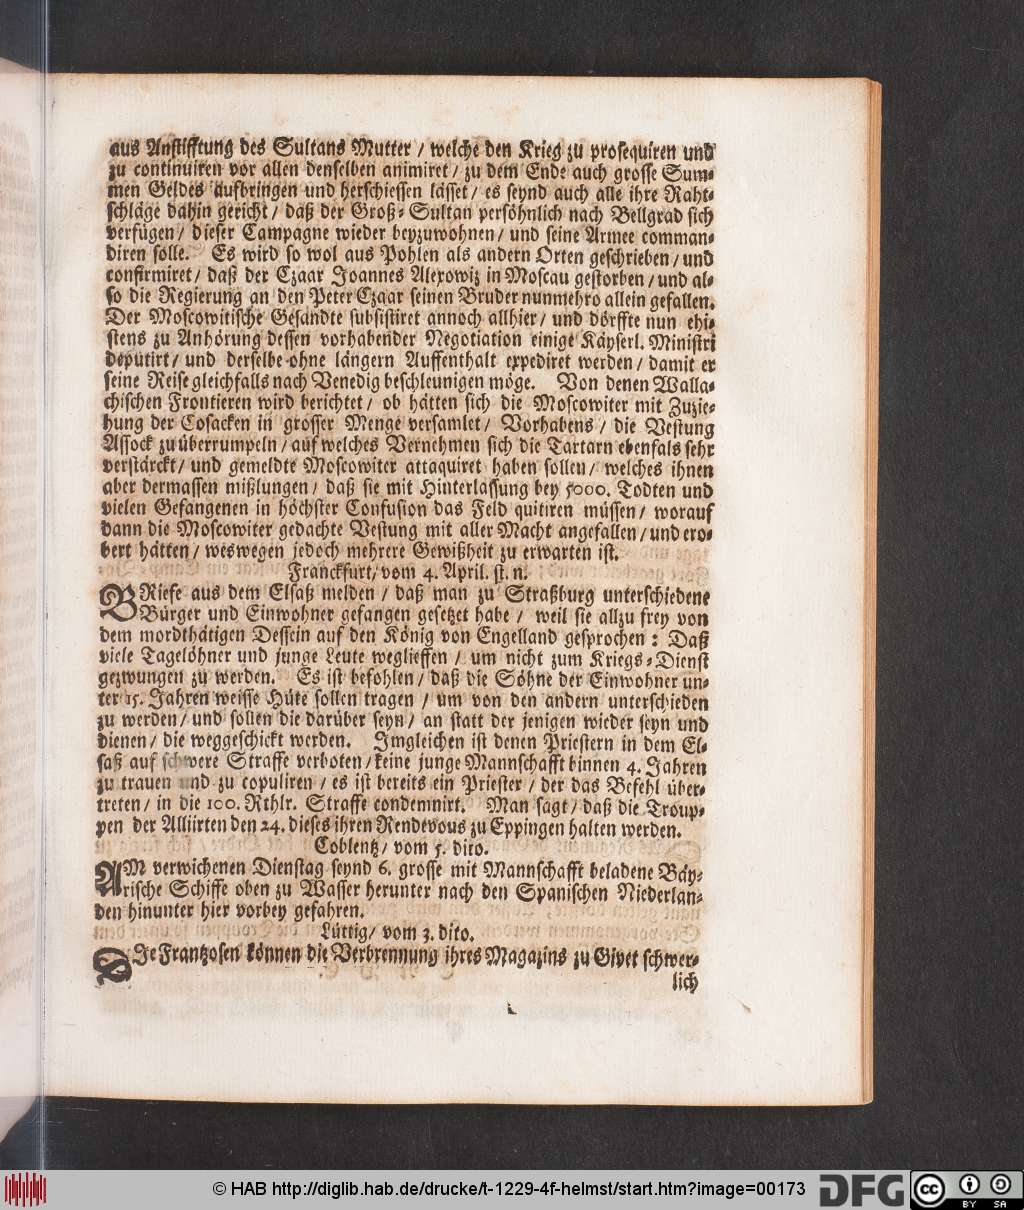 aus Anstifftung des Sultans Mutter / welche den Krieg zu prosequiren und
zu continuiren vor allen denselben animiret / zu dem Ende auch grosse Sum-
men Geldes aufbringen und herschiessen lässet / es seynd auch alle ihre Raht-
schläge dahin gericht / daß der Groß-Sultan persöhnlich nach Bellgrad sich
verfügen / dieser Campagne wieder beyzuwohnen / und seine Armee comman-
diren solle. Es wird so wol aus Pohlen als andern Orten geschrieben / und
confirmiret / daß der Czaar Joannes Alexowiz in Moscau gestorben / und al-
so die Regierung an den Peter Czaar seinen Bruder nunmehro allein gefallen.
Der Moscowitische Gesandte subsistiret annoch allhier / und dörffte nun ehi-
stens zu Anhörung dessen vorhabender Negotiation einige Käyserl. Ministri
deputirt / und derselbe ohne längern Auffenthalt expediret werden / damit er
seine Reise gleichfalls nach Venedig beschleunigen möge. Von denen Walla-
chischen Frontieren wird berichtet / ob hätten sich die Moscowiter mit Zuzie-
hung der Cosacken in grosser Menge versamlet / Vorhabens / die Vestung
Assock zu überrumpeln / auf welches Vernehmen sich die Tartarn ebenfals sehr
verstärckt / und gemeldte Moscowiter attaquiret haben sollen / welches ihnen
aber dermassen mißlungen / daß sie mit Hinterlassung bey 5000. Todten und
vielen Gefangenen in höchster Confusion das Feld quitiren müssen / worauf
dann die Moscowiter gedachte Vestung mit aller Macht angefallen / und ero-
bert hätten / weswegen jedoch mehrere Gewißheit zu erwarten ist.
Franckfurt / vom 4. April. st. n.
BRiefe aus dem Elsaß melden / daß man zu Straßburg unterschiedene
Bürger und Einwohner gefangen gesetzet habe / weil sie allzu frey von
dem mordthätigen Dessein auf den König von Engelland gesprochen: Daß
viele Tagelöhner und junge Leute weglieffen / um nicht zum Kriegs-Dienst
gezwungen zu werden. Es ist befohlen / daß die Söhne der Einwohner un-
ter 15. Jahren weisse Hüte sollen tragen / um von den andern unterschieden
zu werden / und sollen die darüber seyn / an statt der jenigen wieder seyn und
dienen / die weggeschickt werden. Imgleichen ist denen Priestern in dem El-
saß auf schwere Straffe verboten / keine junge Mannschafft binnen 4. Jahren
zu trauen und zu copuliren / es ist bereits ein Priester / der das Befehl über-
treten / in die 100. Rthlr. Straffe condemnirt. Man sagt / daß die Troup-
pen der Alliirten den 24. dieses ihren Rendevous zu Eppingen halten werden.
Coblentz / vom 5. dito.
AM verwichenen Dienstag seynd 6. grosse mit Mannschafft beladene Bäy-
rische Schiffe oben zu Wasser herunter nach den Spanischen Niederlan-
den hinunter hier vorbey gefahren.
Lüttig / vom 3. dito.
DIe Frantzosen können die Verbrennung ihres Magazins zu Givet schwer-
lich
© HAB http://diglib.hab.de/drucke/t-1229-4f-helmst/start.htm?image=00173
DFG
cc
BY SA